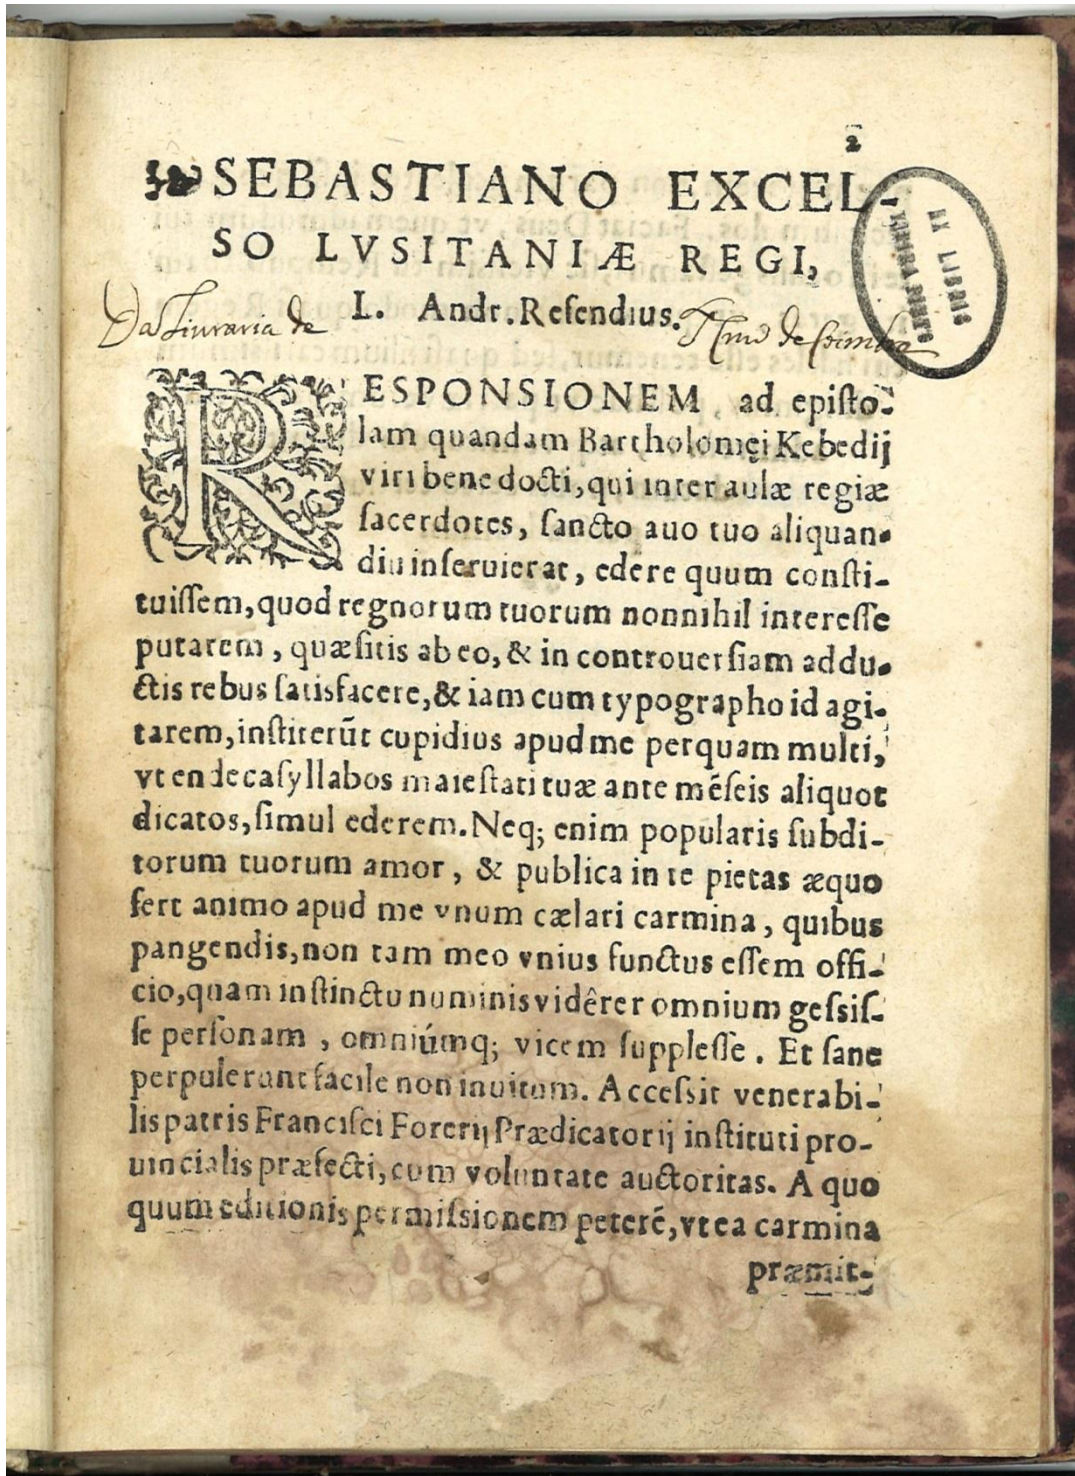 2
SEBASTIANO EXCEL-
SO LVSITANIÆ REGI,
L. Andr. Resendius.
Da Liuraria de
de Coimbra
EX LIBRIS
RESPONSIONEM ad episto-
lam quandam Bartholomęi Kebedij
viri bene docti, qui inter aulæ regiæ
ſacerdotes, ſancto auo tuo aliquan-
diu inſeruierat, edere quum conſti-
tuiſſem, quod regnorum tuorum nonnihil intereſſe
putarem, quæſitis ab eo, & in controuerſiam addu-
ctis rebus ſatisfacere, & iam cum typographo id agi-
tarem, inſtiterũt cupidius apud me perquam multi,
vt endecaſyllabos maieſtati tuæ ante mẽſeis aliquot
dicatos, ſimul ederem. Neq; enim popularis ſubdi-
torum tuorum amor, & publica in te pietas æquo
fert animo apud me vnum cælari carmina, quibus
pangendis, non tam meo vnius functus eſſem offi-
cio, quam inſtinctu numinis vidêrer omnium geſsiſ-
ſe perſonam, omniúmq; vicem ſuppleſſe. Et ſane
perpulerunt facile non inuitum. Acceſsit venerabi-
lis patris Franciſci Forerij Prædicatorij inſtituti pro-
uincialis præfecti, cum voluntate auctoritas. A quo
quum editionis permiſsionem peterẽ, vt ea carmina
præmit-